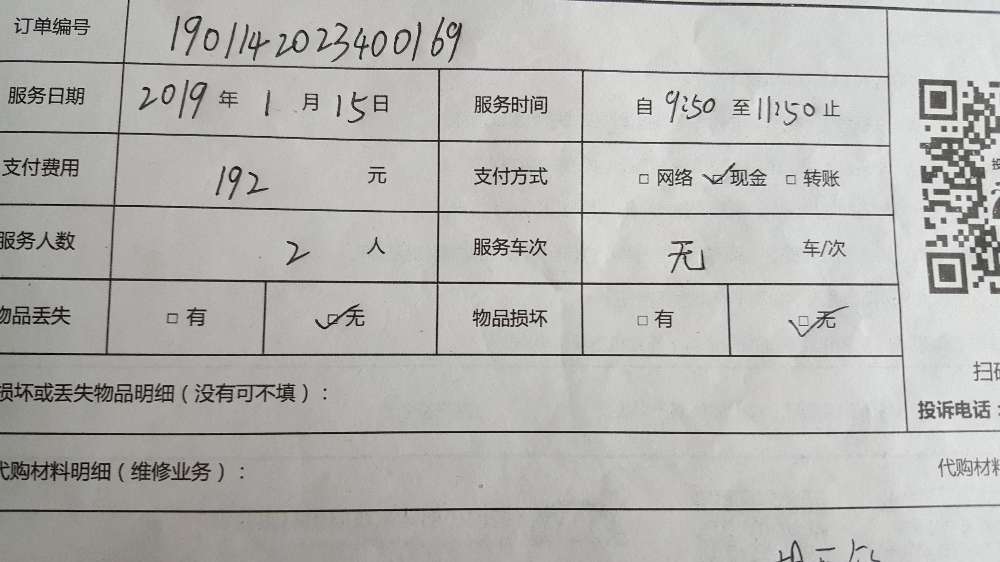 订单编号 190114202340 0169
服务日期 2019 年 1 月 15 日 服务时间 自 9:50 至 11:50 止
支付费用 192 元 支付方式 □ 网络 ☑ 现金 □ 转账
服务人数 2 人 服务车次 无 车/次
物品丢失 □ 有 ☑ 无 物品损坏 □ 有 ☑ 无
扫
损坏或丢失物品明细（没有可不填）：
投诉电话：
代购材料明细（维修业务）：
代购材料